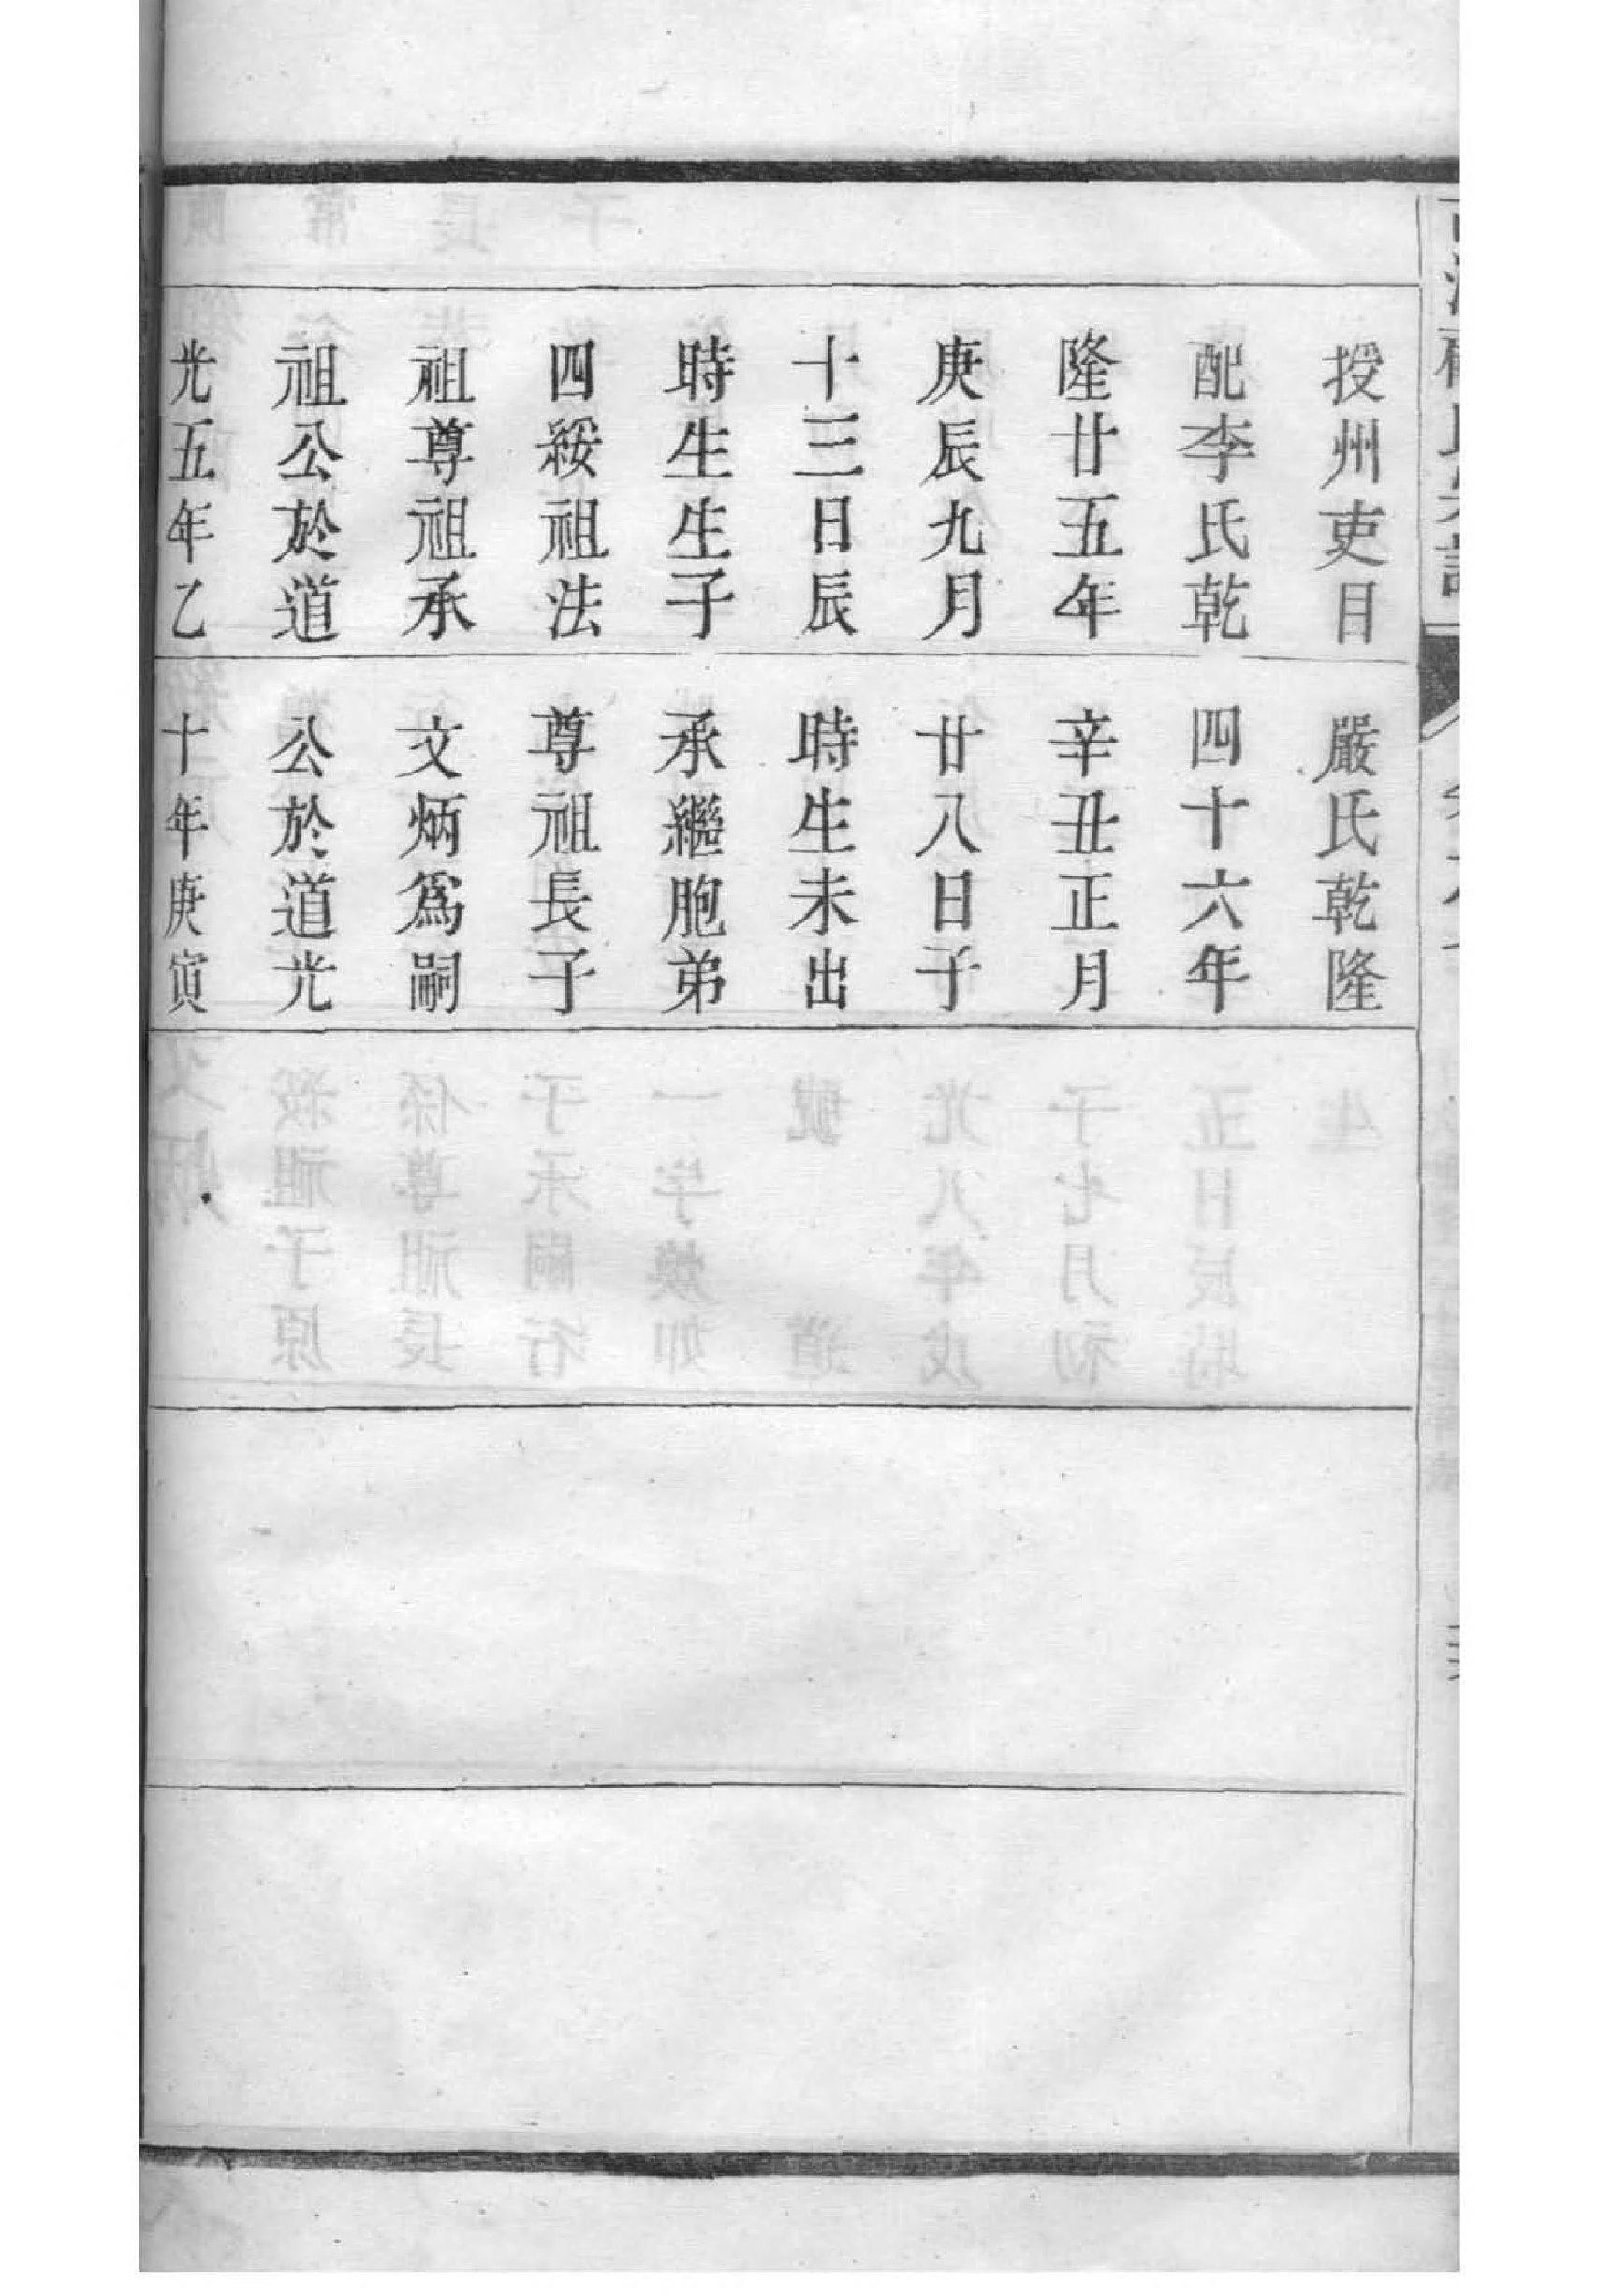 授州吏目
配李氏乾
隆廿五年
庚辰九月
十三日辰
時生生子
四綏祖法
祖尊祖承
祖公於道
光五年乙
嚴氏乾隆
四十六年
辛丑正月
廿八日子
時生未出
承繼胞弟
尊祖長子
文炳爲嗣
公於道光
十年庚寅